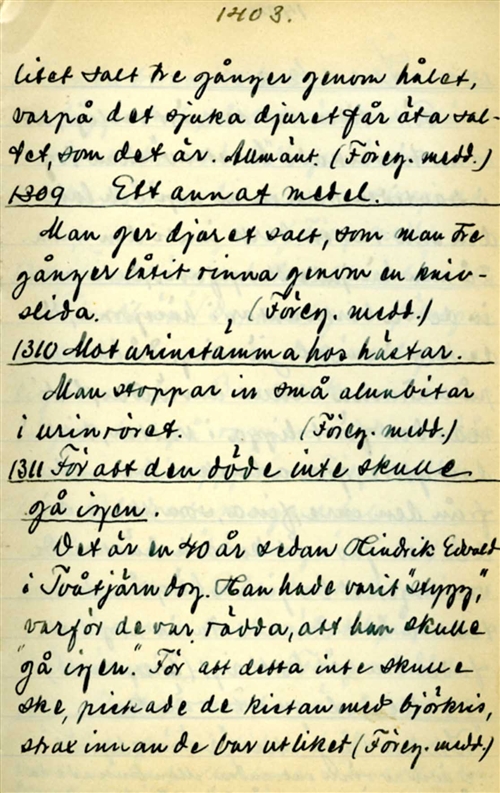 1403.
litet salt tre gånger genom hålet,
varpå det sjuka djuret får äta sal-
tet, som det är. Allmänt. (Föreg. medd.)
1309 Ett annat medel.
Man ger djuret salt, som man tre
gånger låtit rinna genom en kniv-
slida. (Föreg. medd.)
1310 Mot urinstämma hos hästar.
Man stoppar in små alunbitar
i urinröret. (Föreg. medd.)
1311 För att den döde inte skulle
gå igen.
Det är en 40 år sedan Hindrik Edvald
i Tvåtjärn dog. Han hade varit "stygg",
varför de var rädda, att han skulle
"gå igen." För att detta inte skulle
ske, piskade de kistan med björkris,
strax innan de bar ut liket (Föreg. medd.)